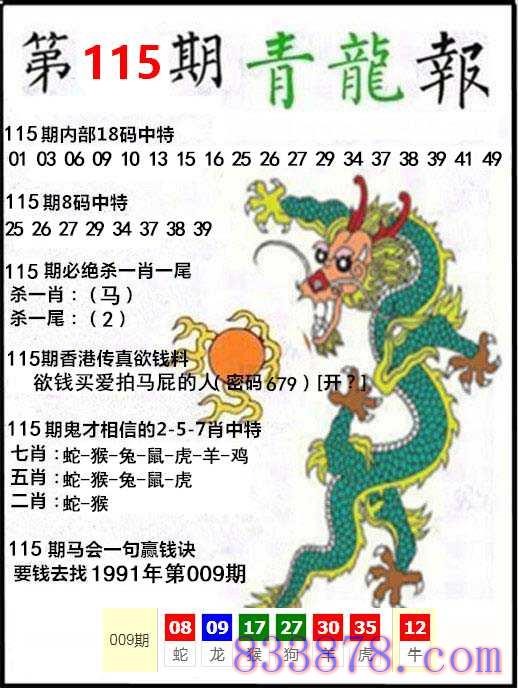 第115期青龍報
115期内部18码中特
01 03 06 09 10 13 15 16 25 26 27 29 34 37 38 39 41 49
115期8码中特
25 26 27 29 34 37 38 39
115期必绝杀一肖一尾
杀一肖：（马）
杀一尾：（2）
115期香港传真欲钱料
欲钱买爱拍马屁的人（密码679）[开？]
115期鬼才相信的2-5-7肖中特
七肖：蛇-猴-兔-鼠-虎-羊-鸡
五肖：蛇-猴-兔-鼠-虎
二肖：蛇-猴
115期马会一句赢钱诀
要钱去找1991年第009期
009期 08 09 17 27 30 35 12
蛇 龙 猴 狗 羊 虎 牛
833878.com